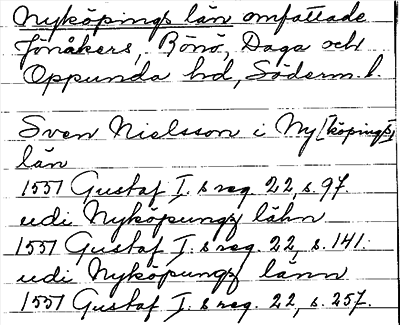 Nyköpings län omfattade
Jönåkers, Rönö, Daga och
Oppunda hd, Söderm. l.
Sven Nielsson i Ny[köpings]
län
1551 Gustaf I. s reg. 22, s. 97
udi Nyköpungz lähn
1551 Gustaf I. s reg. 22, s. 141.
udi Nyköpungz länn
1551 Gustaf I. s reg. 22, s. 257.